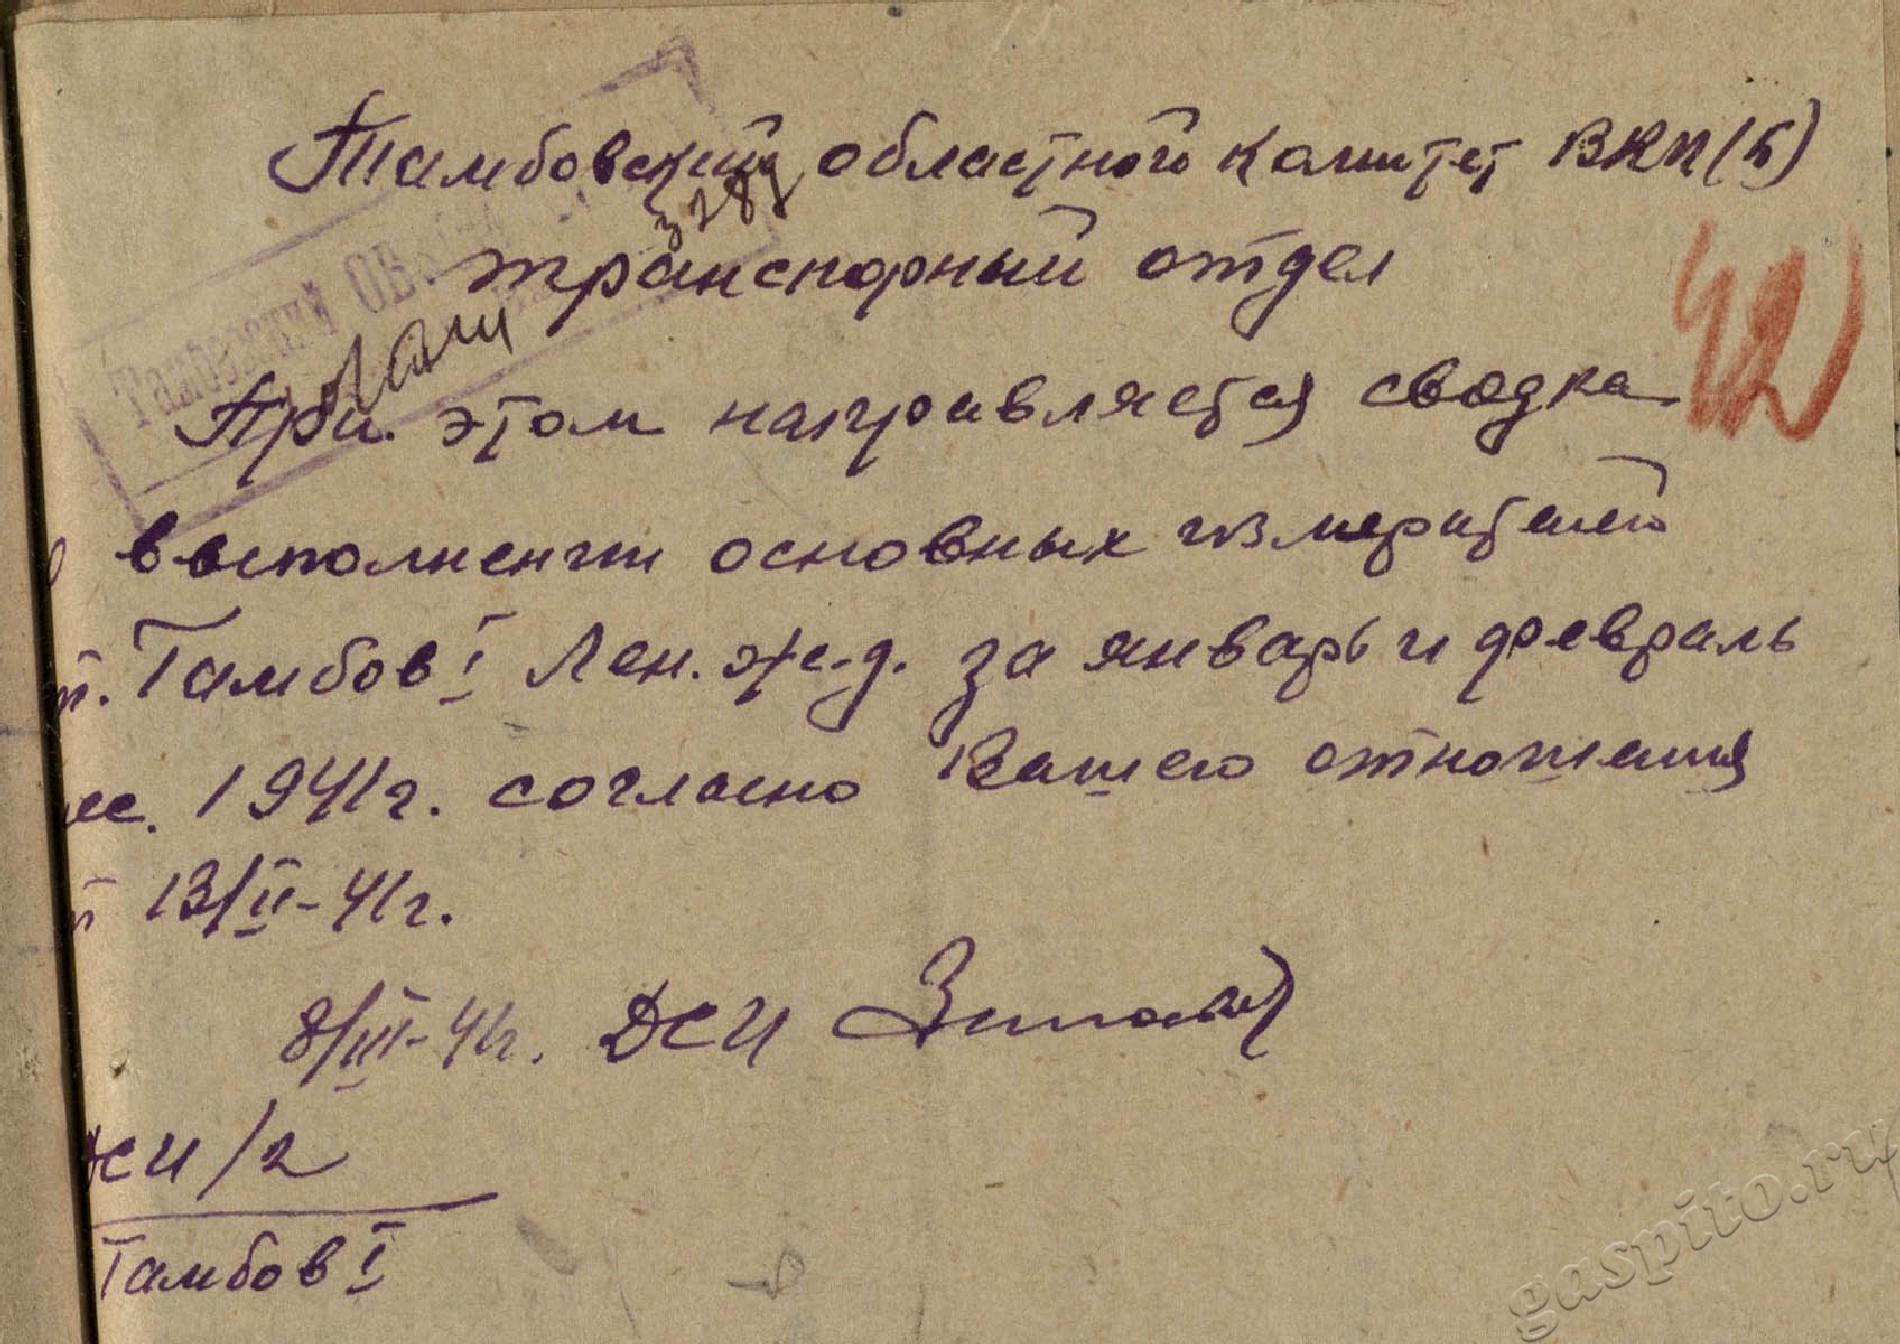 Тамбовский областной комитет ВКП(б)
транспорный отдел
Тамбовский ОБ
42
При этом направляется сводка
о выполнении основных измерителей
т. Тамбов I Лен. ж.д. за январь и февраль
ес. 1941г. согласно Вашего отношения
т 13/II-41г.
8/III-41г. ДСИ
ДСИ/2
Тамбов I
gaspito.ru